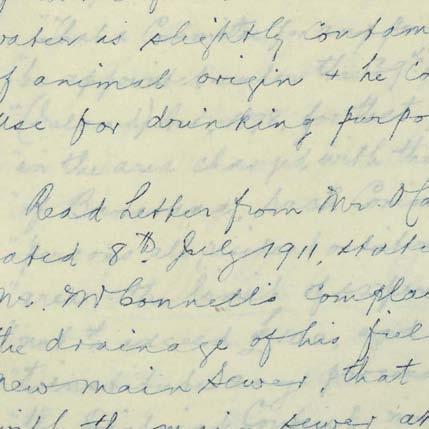 water is slightly contam
f animal origin + he co
use for drinking purpo
Read letter from Mr. O'Co
ated 8th July 1911, state
Mr. McConnell's complai
the drainage of his fiel
new main sewer, that
with the main sewer an